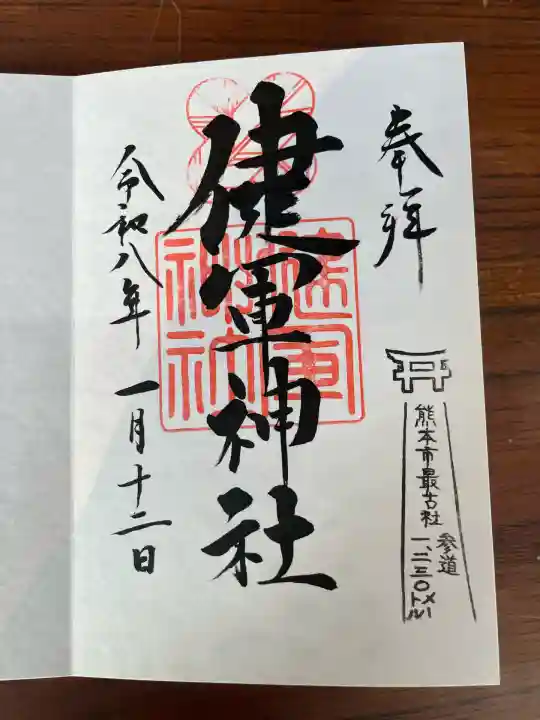 奉拝
熊本市最古社
参道
一、二三〇メートル
健軍神社
健軍
神社
令和八年一月十二日